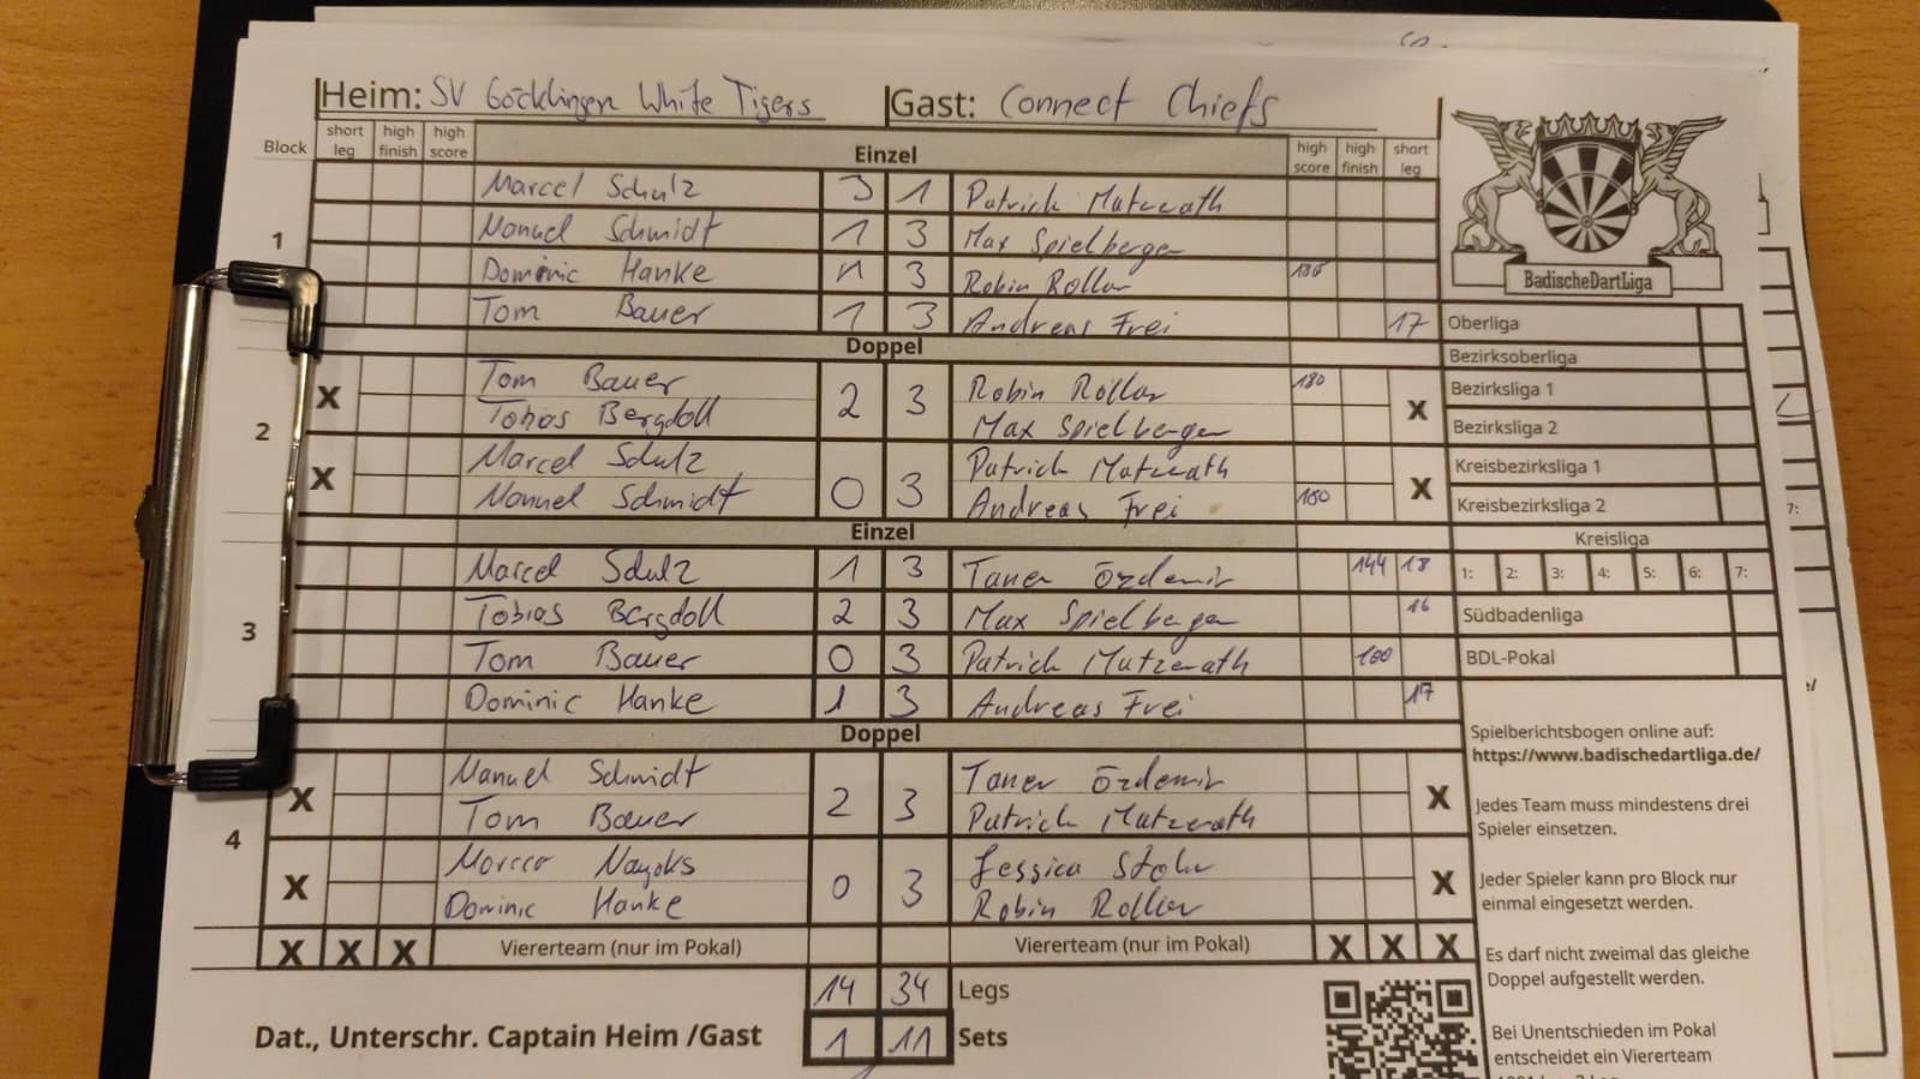 Heim: SV Göcklingen White Tigers Gast: Connect Chiefs
Block short leg high finish high score Einzel high score high finish short leg
Marcel Schulz 3 1 Patrick Matzerath
1 Manuel Schmidt 1 3 Max Spielberger
Dominic Hanke 1 3 Robin Rollar 180
Tom Bauer 1 3 Andreas Frei 17
BadischeDartLiga
Oberliga
Doppel
Bezirksoberliga
2
X Tom Bauer 2 3 Robin Rollar 180 X
Tobias Bergdoll Max Spielberger
Bezirksliga 1
Bezirksliga 2
X Marcel Schulz 0 3 Patrick Matzerath X
Manuel Schmidt Andreas Frei 180
Kreisbezirksliga 1
Kreisbezirksliga 2
Einzel
Kreisliga
Marcel Schulz 1 3 Taner Özdemir 144 18
1: 2: 3: 4: 5: 6: 7:
3 Tobias Bergdoll 2 3 Max Spielberger 16
Südbadenliga
Tom Bauer 0 3 Patrick Matzerath 100
BDL-Pokal
Dominic Hanke 1 3 Andreas Frei 17
Doppel
4
X Manuel Schmidt 2 3 Taner Özdemir X
Tom Bauer Patrick Matzerath
X Dominic Hanke 0 3 Jessica X
Robin
X X X Viererteam (nur im Pokal) Viererteam (nur im Pokal) X X X
14 34 Legs
Dat., Unterschr. Captain Heim /Gast 1 11 Sets
Spielberichtsbogen online auf:
https://www.badischedartliga.de/
Jedes Team muss mindestens drei
Spieler einsetzen.
Jeder Spieler kann pro Block nur
einmal eingesetzt werden.
Es darf nicht zweimal das gleiche
Doppel aufgestellt werden.
Bei Unentschieden im Pokal
entscheidet ein Viererteam
7: